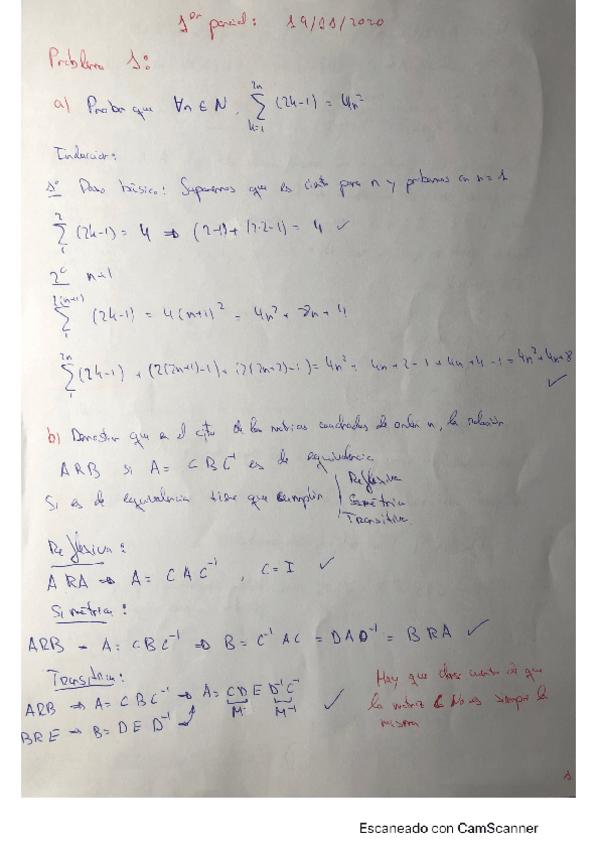 1er parcial: 19/11/2020
Problema 1:
a) Probar que ∀n ∈ N, 2n ∑ k=1 (2k-1) = 4n²
Induccion:
1º Paso básico: Suponemos que es cierto para n y probamos con n=1
2 ∑ 1 (2k-1) = 4 ⇒ (2-1)+(2·2-1) = 4 ✓
2º n+1
2(n+1) ∑ 1 (2k-1) = 4(n+1)² = 4n² + 8n + 4
2n ∑ 1 (2k-1) + (2(2n+1)-1) + (2(2n+2)-1) = 4n² + 4n+2-1+4n+4-1 = 4n²+4n+8 ✓
b) Demostrar que en el cjto de las matrices cuadradas de orden n, la relación
ARB si A = CBC⁻¹ es de equivalencia
Si es de equivalencia tiene que cumplir
Reflexiva
Simétrica
Transitiva
Reflexiva:
ARA ⇒ A = CAC⁻¹, C = I ✓
Simétrica:
ARB - A = CBC⁻¹ ⇒ B = C⁻¹AC = DAD⁻¹ = BRA ✓
Transitiva:
ARB ⇒ A = CBC⁻¹ ⇒ A = CDED⁻¹C⁻¹ ✓
M M⁻¹
BRE ⇒ B = DED⁻¹
Hay que darse cuenta de que
la matriz C no es siempre la
misma
1
Escaneado con CamScanner